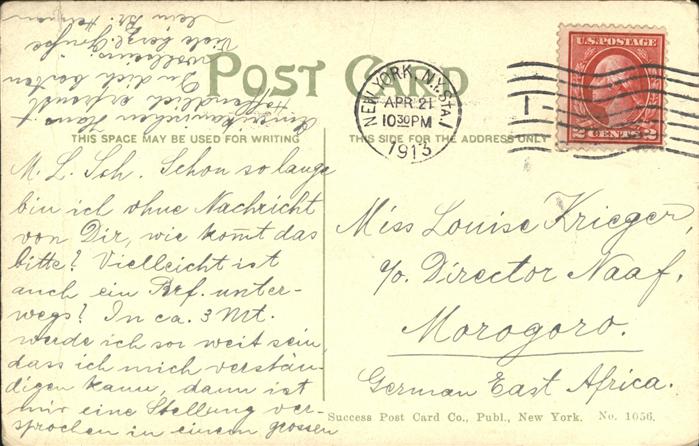 POST CARD
THIS SPACE MAY BE USED FOR WRITING
THIS SIDE FOR THE ADDRESS ONLY
NEW YORK, N.Y. STA.
APR 21
10 30 PM
1913
U.S. POSTAGE
2 CENTS 2
M. L. Sch. Schon so lange
bin ich ohne Nachricht
von Dir, wie kom̄t das
bitte? Vielleicht ist
auch ein Brf. unter-
wegs? In ca. 3 Mt.
werde ich so weit sein,
dass ich mich verstän-
digen kann, dann ist
mir eine Stellung ver-
sprochen in einem grossen
amerikanischen Haus.
Hoffendlich erfreust
Du dich besten
wohlseins
Viele herzl. Grüsse
dein Br.
Miss Louise Krieger,
c/o. Director Naaf,
Morogoro.
German East Africa.
Success Post Card Co., Publ., New York. No. 1056.